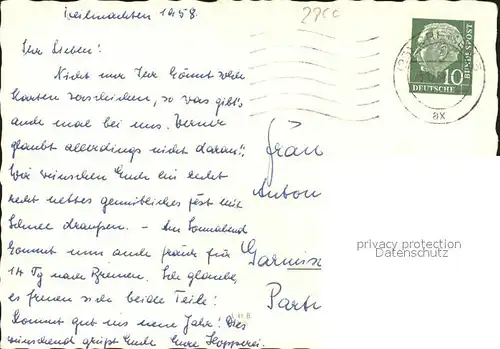 Weihnachten 1958.
Ihr Lieben!
Nicht nur Ihr könnt solche
Karten verschicken, so was gibt's
auch mal bei uns. Werner
glaubt allerdings nicht daran!!
Wir wünschen Euch ein recht
recht nettes gemütliches Fest mit
Schnee draußen. – Am Sonnabend
kommt nun auch für
14 Tg nach Bremen. Ich glaube,
es freuen sich beide Teile!
Kommt gut ins neue Jahr! Dies
wünschend grüßt Euch Eure
Frau
Anton
Garmisc
Part
10
BUNDESPOST
DEUTSCHE
ax
privacy protection
Datenschutz